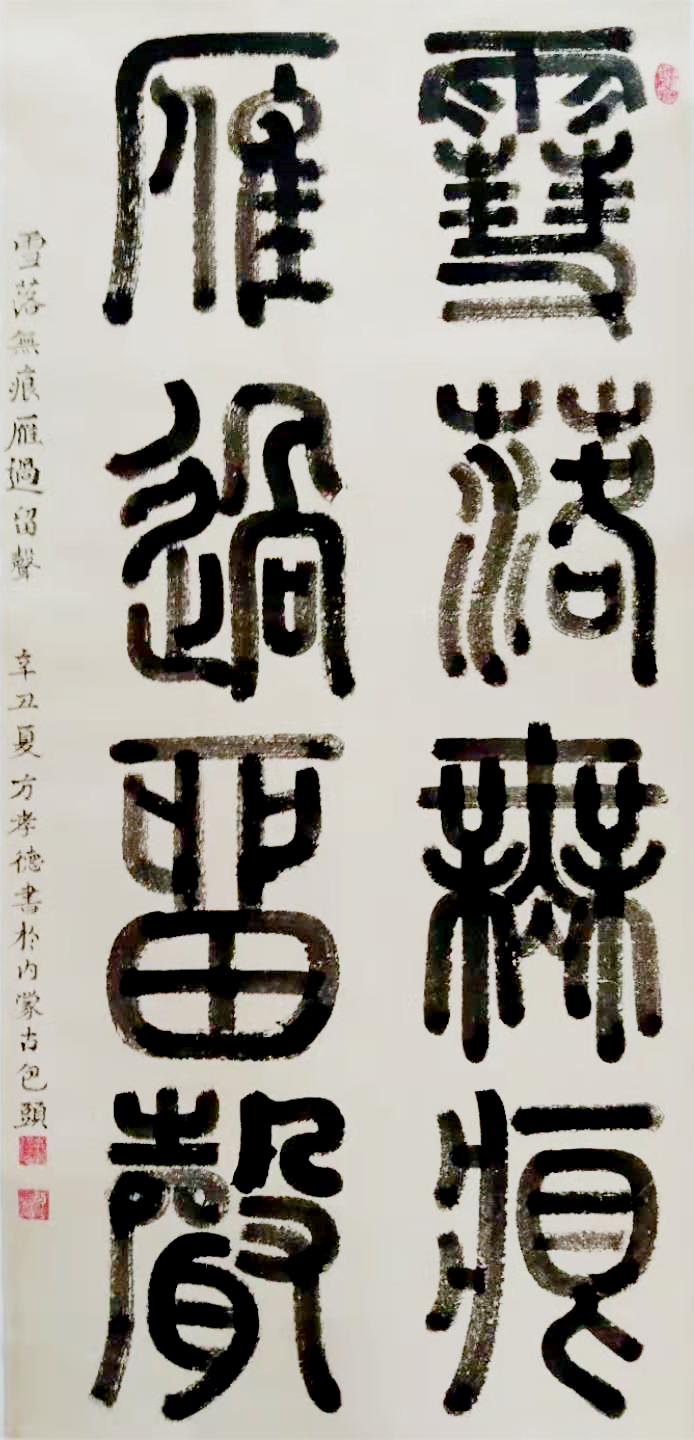 雪落無痕
雁過留聲
雪落無痕雁過留聲 辛丑夏方孝德書於內蒙古包頭